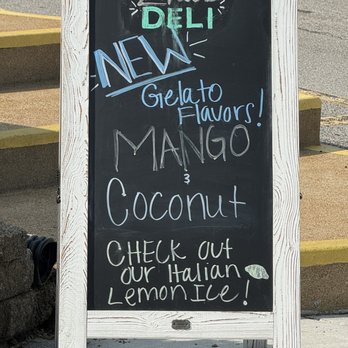 DELI
NEW
Gelato
Flavors!
MANGO
&
Coconut
CHECK out
our Italian
Lemon Ice!